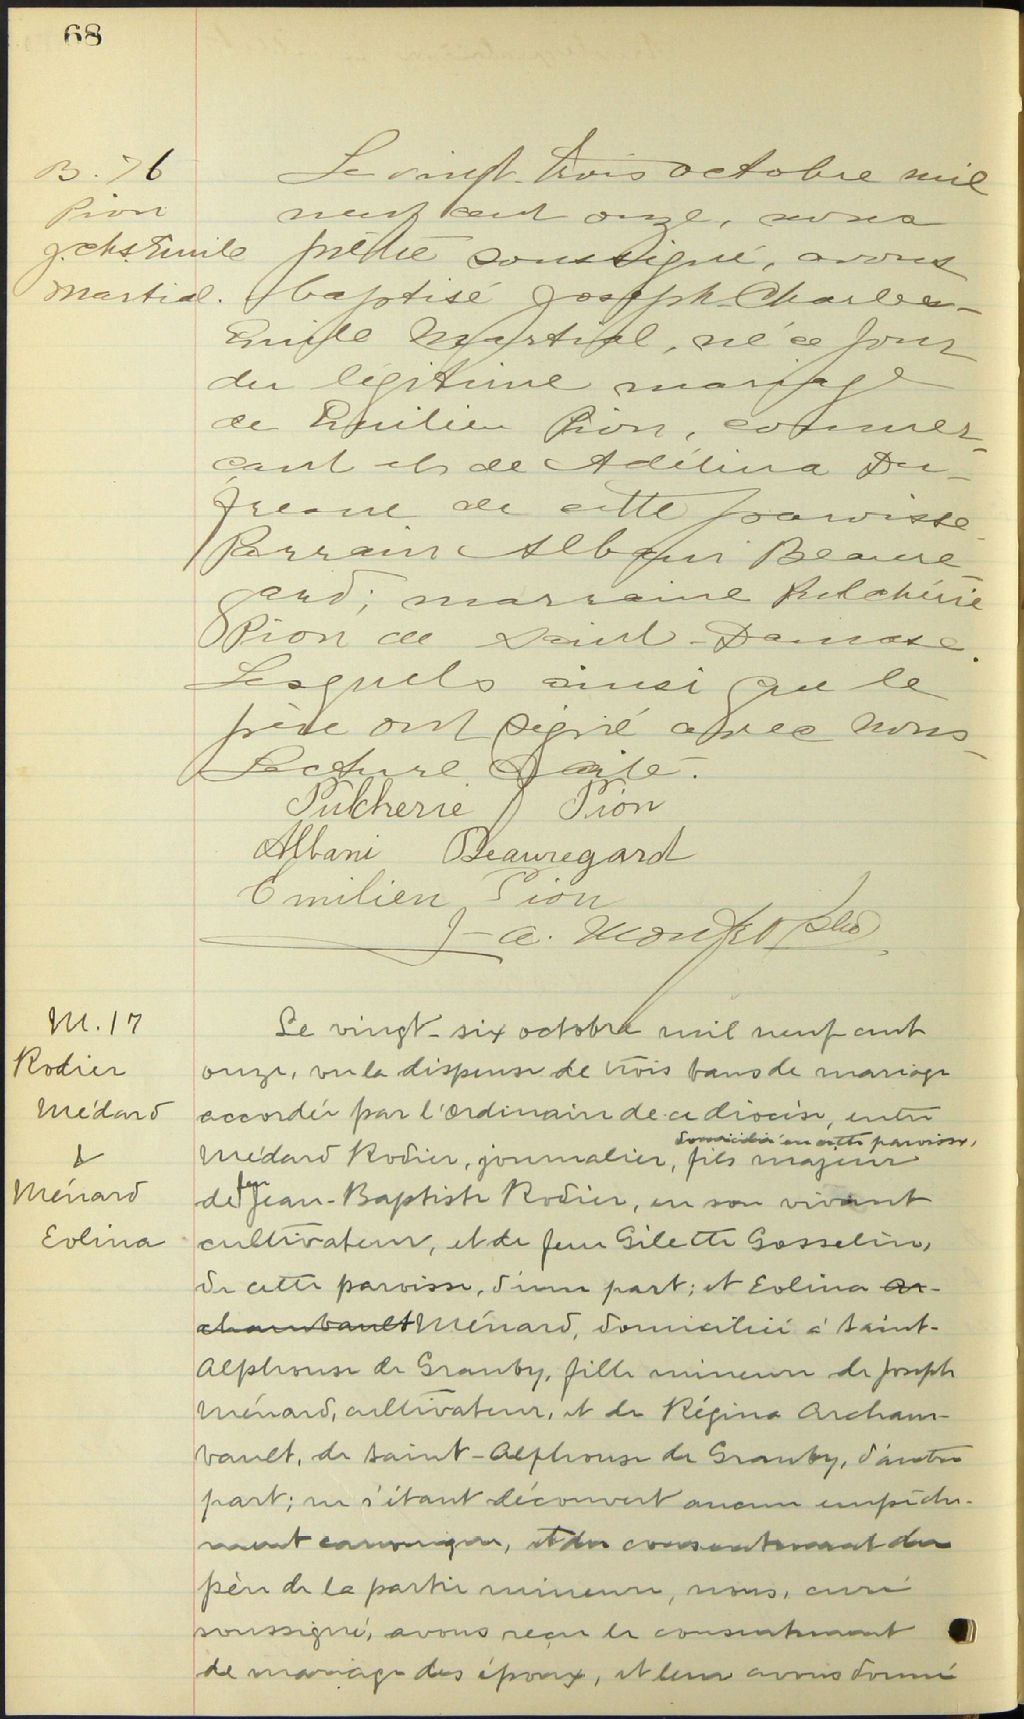 68
B. 76
Pion
J. Chs. Emile
Martial.
Le vingt-trois octobre mil
neuf cent onze, nous
prêtre soussigné, avons
baptisé Joseph-Charles-
Emile Martial, né ce jour
du légitime mariage
de Emilien Pion, commer-
çant et de Adélina Du-
fresne de cette paroisse.
Parrain Albani Beaure-
gard; marraine Pulchérie
Pion de Saint-Damase.
Lesquels ainsi que le
père ont signé avec nous
Lecture faite.
Pulcherie Pion
Albani Beauregard
Emilien Pion
J-A. ptre
M. 17
Rodier
Médard
&
Ménard
Eolina
Le vingt-six octobre mil neuf cent
onze, vu la dispense de trois bans de mariage
accordée par l'Ordinaire de ce diocèse, entre
domicilié en cette paroisse,
Médard Rodier, journalier, fils majeur
de feu Jean-Baptiste Rodier, en son vivant
cultivateur, et de feue Gilette Gosselin,
de cette paroisse, d'une part; et Eolina Ar-
chambault Ménard, domiciliée à Saint-
Alphonse de Granby, fille mineure de Joseph
Ménard, cultivateur, et de Régina Archam-
bault, de Saint-Alphonse de Granby, d'autre
part; ne s'étant découvert aucun empêche-
ment canonique, et du consentement du
père de la partie mineure, nous, curé
soussigné, avons reçu le consentement
de mariage des époux, et leur avons donné